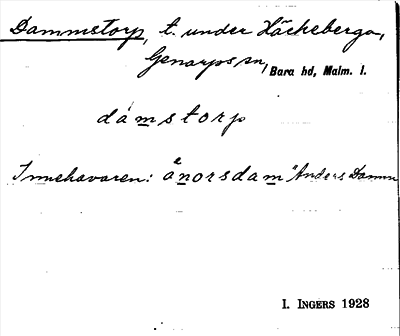 Dammstorp, t. under Häckeberga,
Genarps sn, Bara hd, Malm. l.
dámstorp
Innehavaren: ånorsdam "Anders Damm
I. INGERS 1928